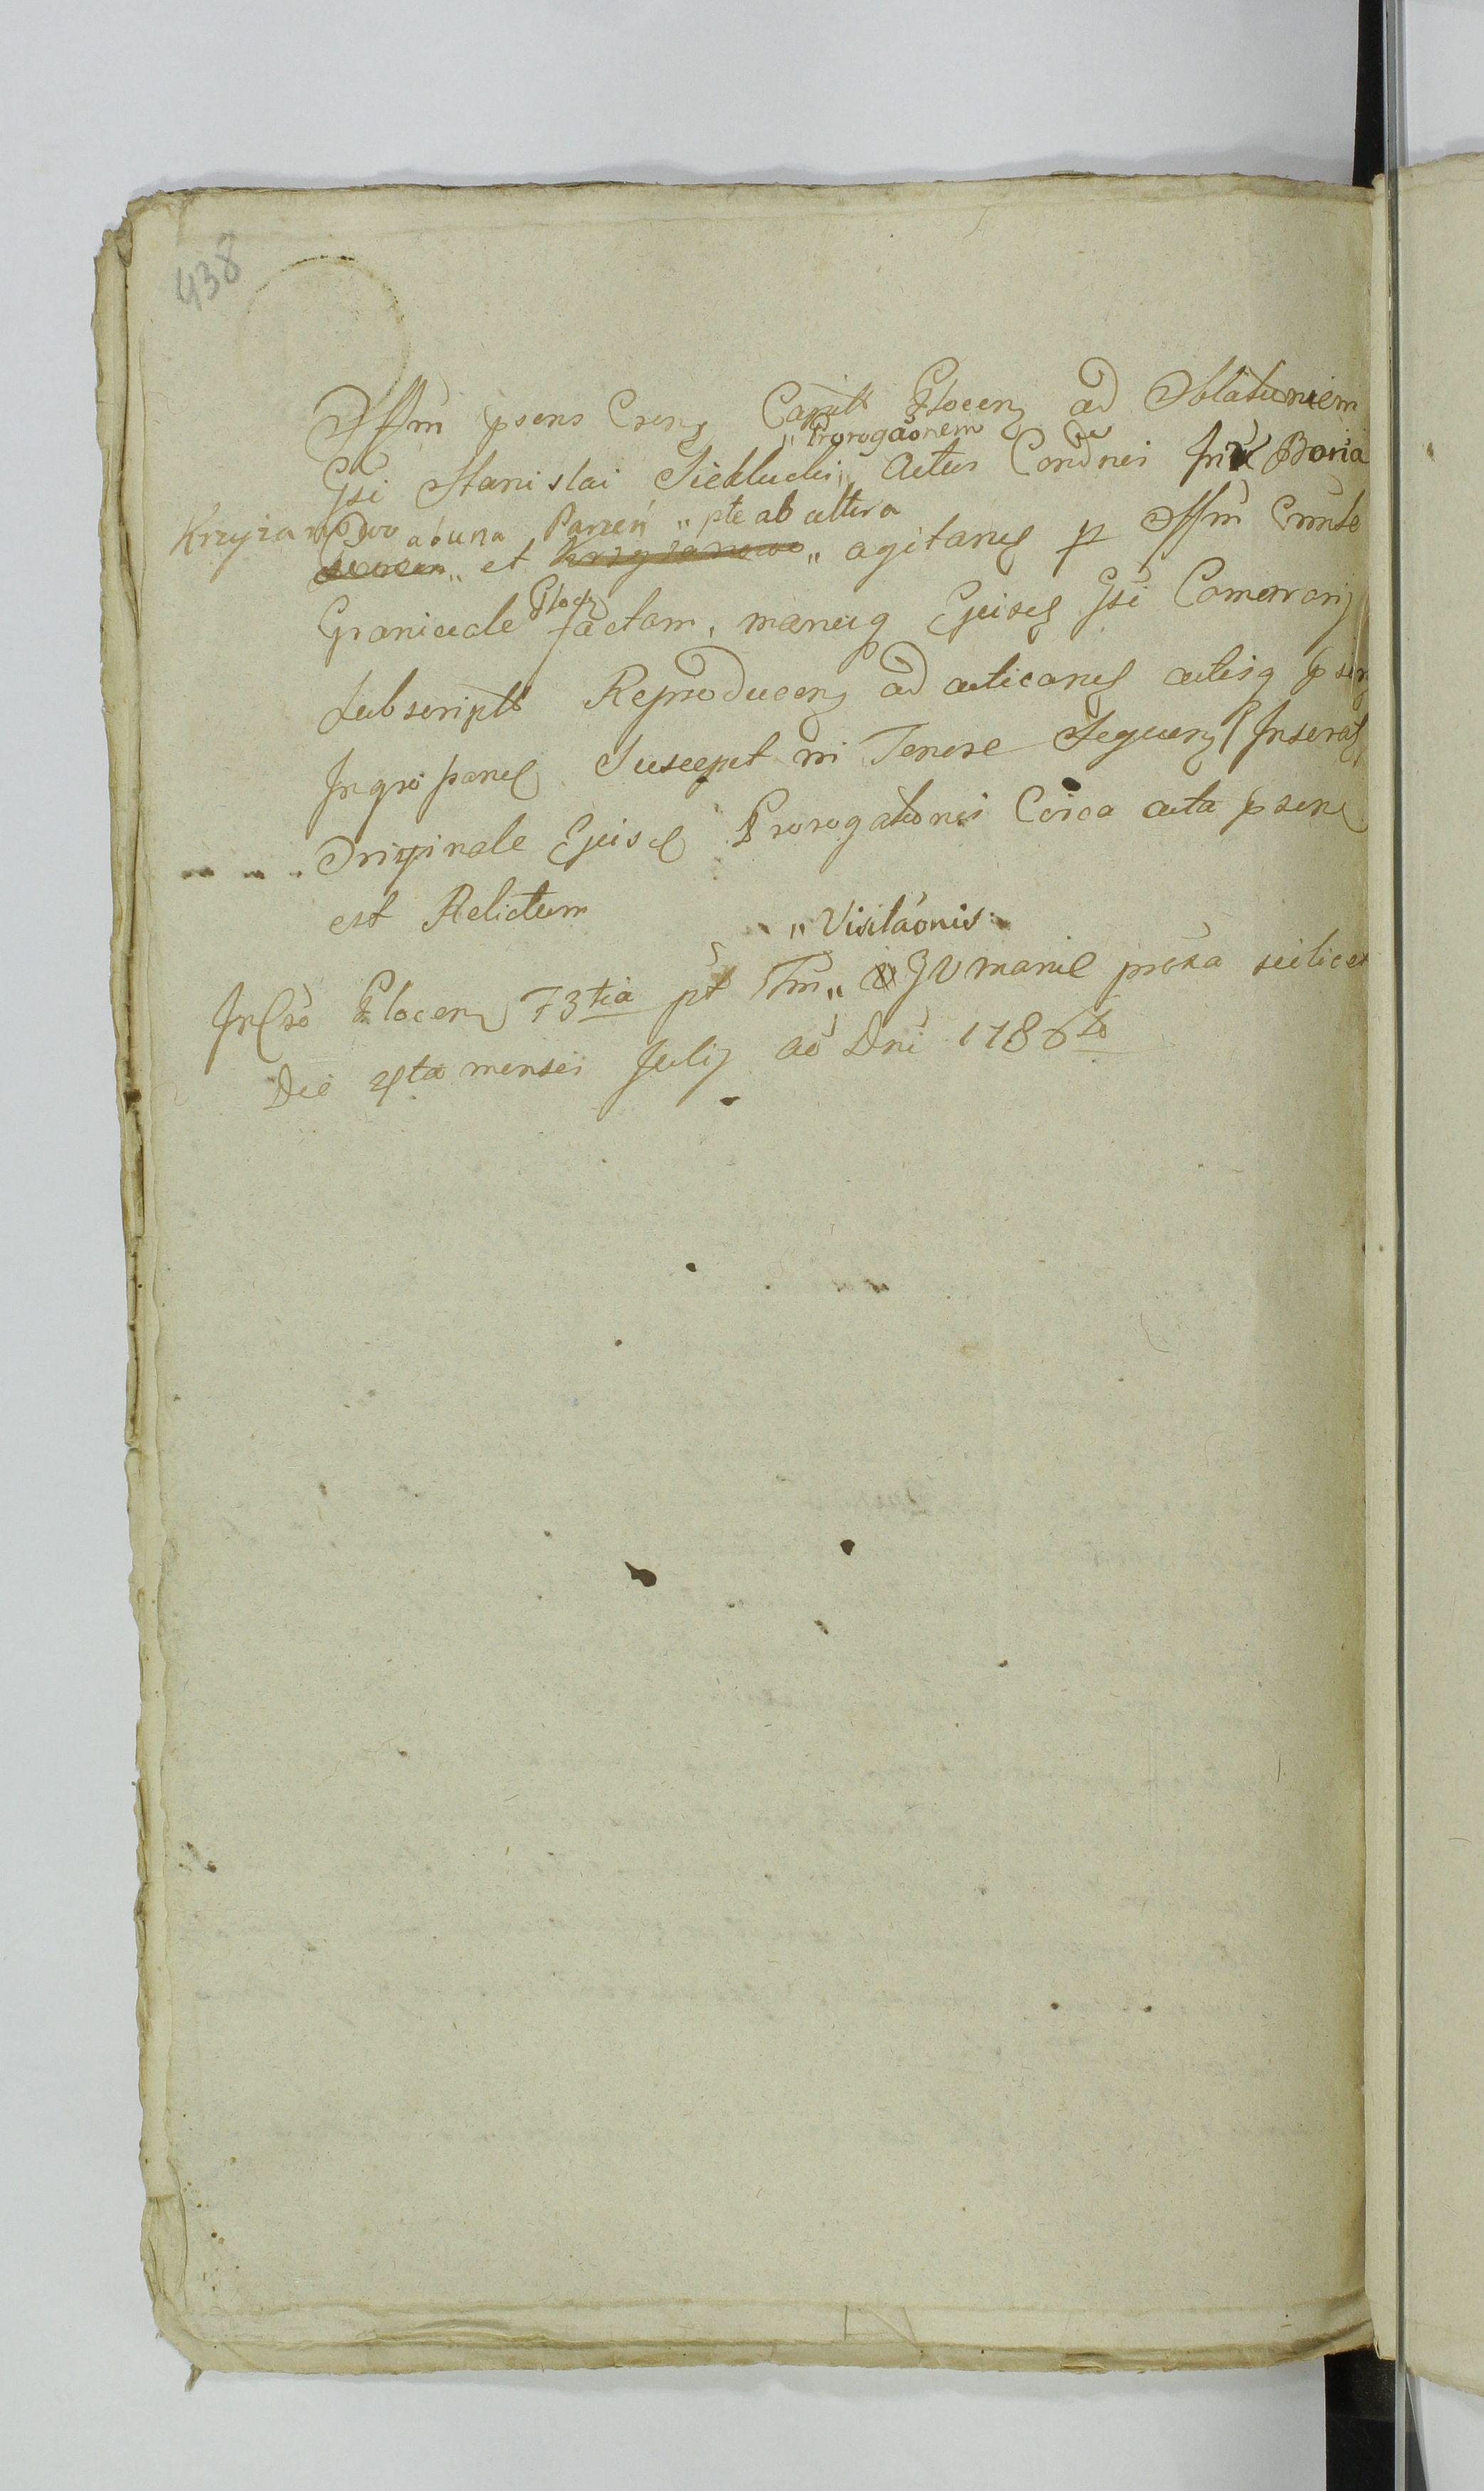 438
Offm psens Csens Capitt Plocens ad Oblatuniem
"Prorogaonem
Gsi Stanislai Siekluchi „ Actus Condnei Intr Bona
Krzyzanowo ab una Parzeń „ pte ab altera
et Krzyzanowo „ agitanes p Offm Cmmte
Plocs
Graniciale factam, manuq Ejusd Gsi Camerarij
subscriptt Reproducens ad acticand actisq psen
Ingrossand Suscepit ni Tenore Sequens Inserat
Originale Ejusd Prorogationis Circa acta psene
est Relictum
"Visitaonis
In Cso Plocens F3tia pt Ftm „ IV Mariae proxa scilicet
Die 4ta mensis Julij ao Dni 1786to